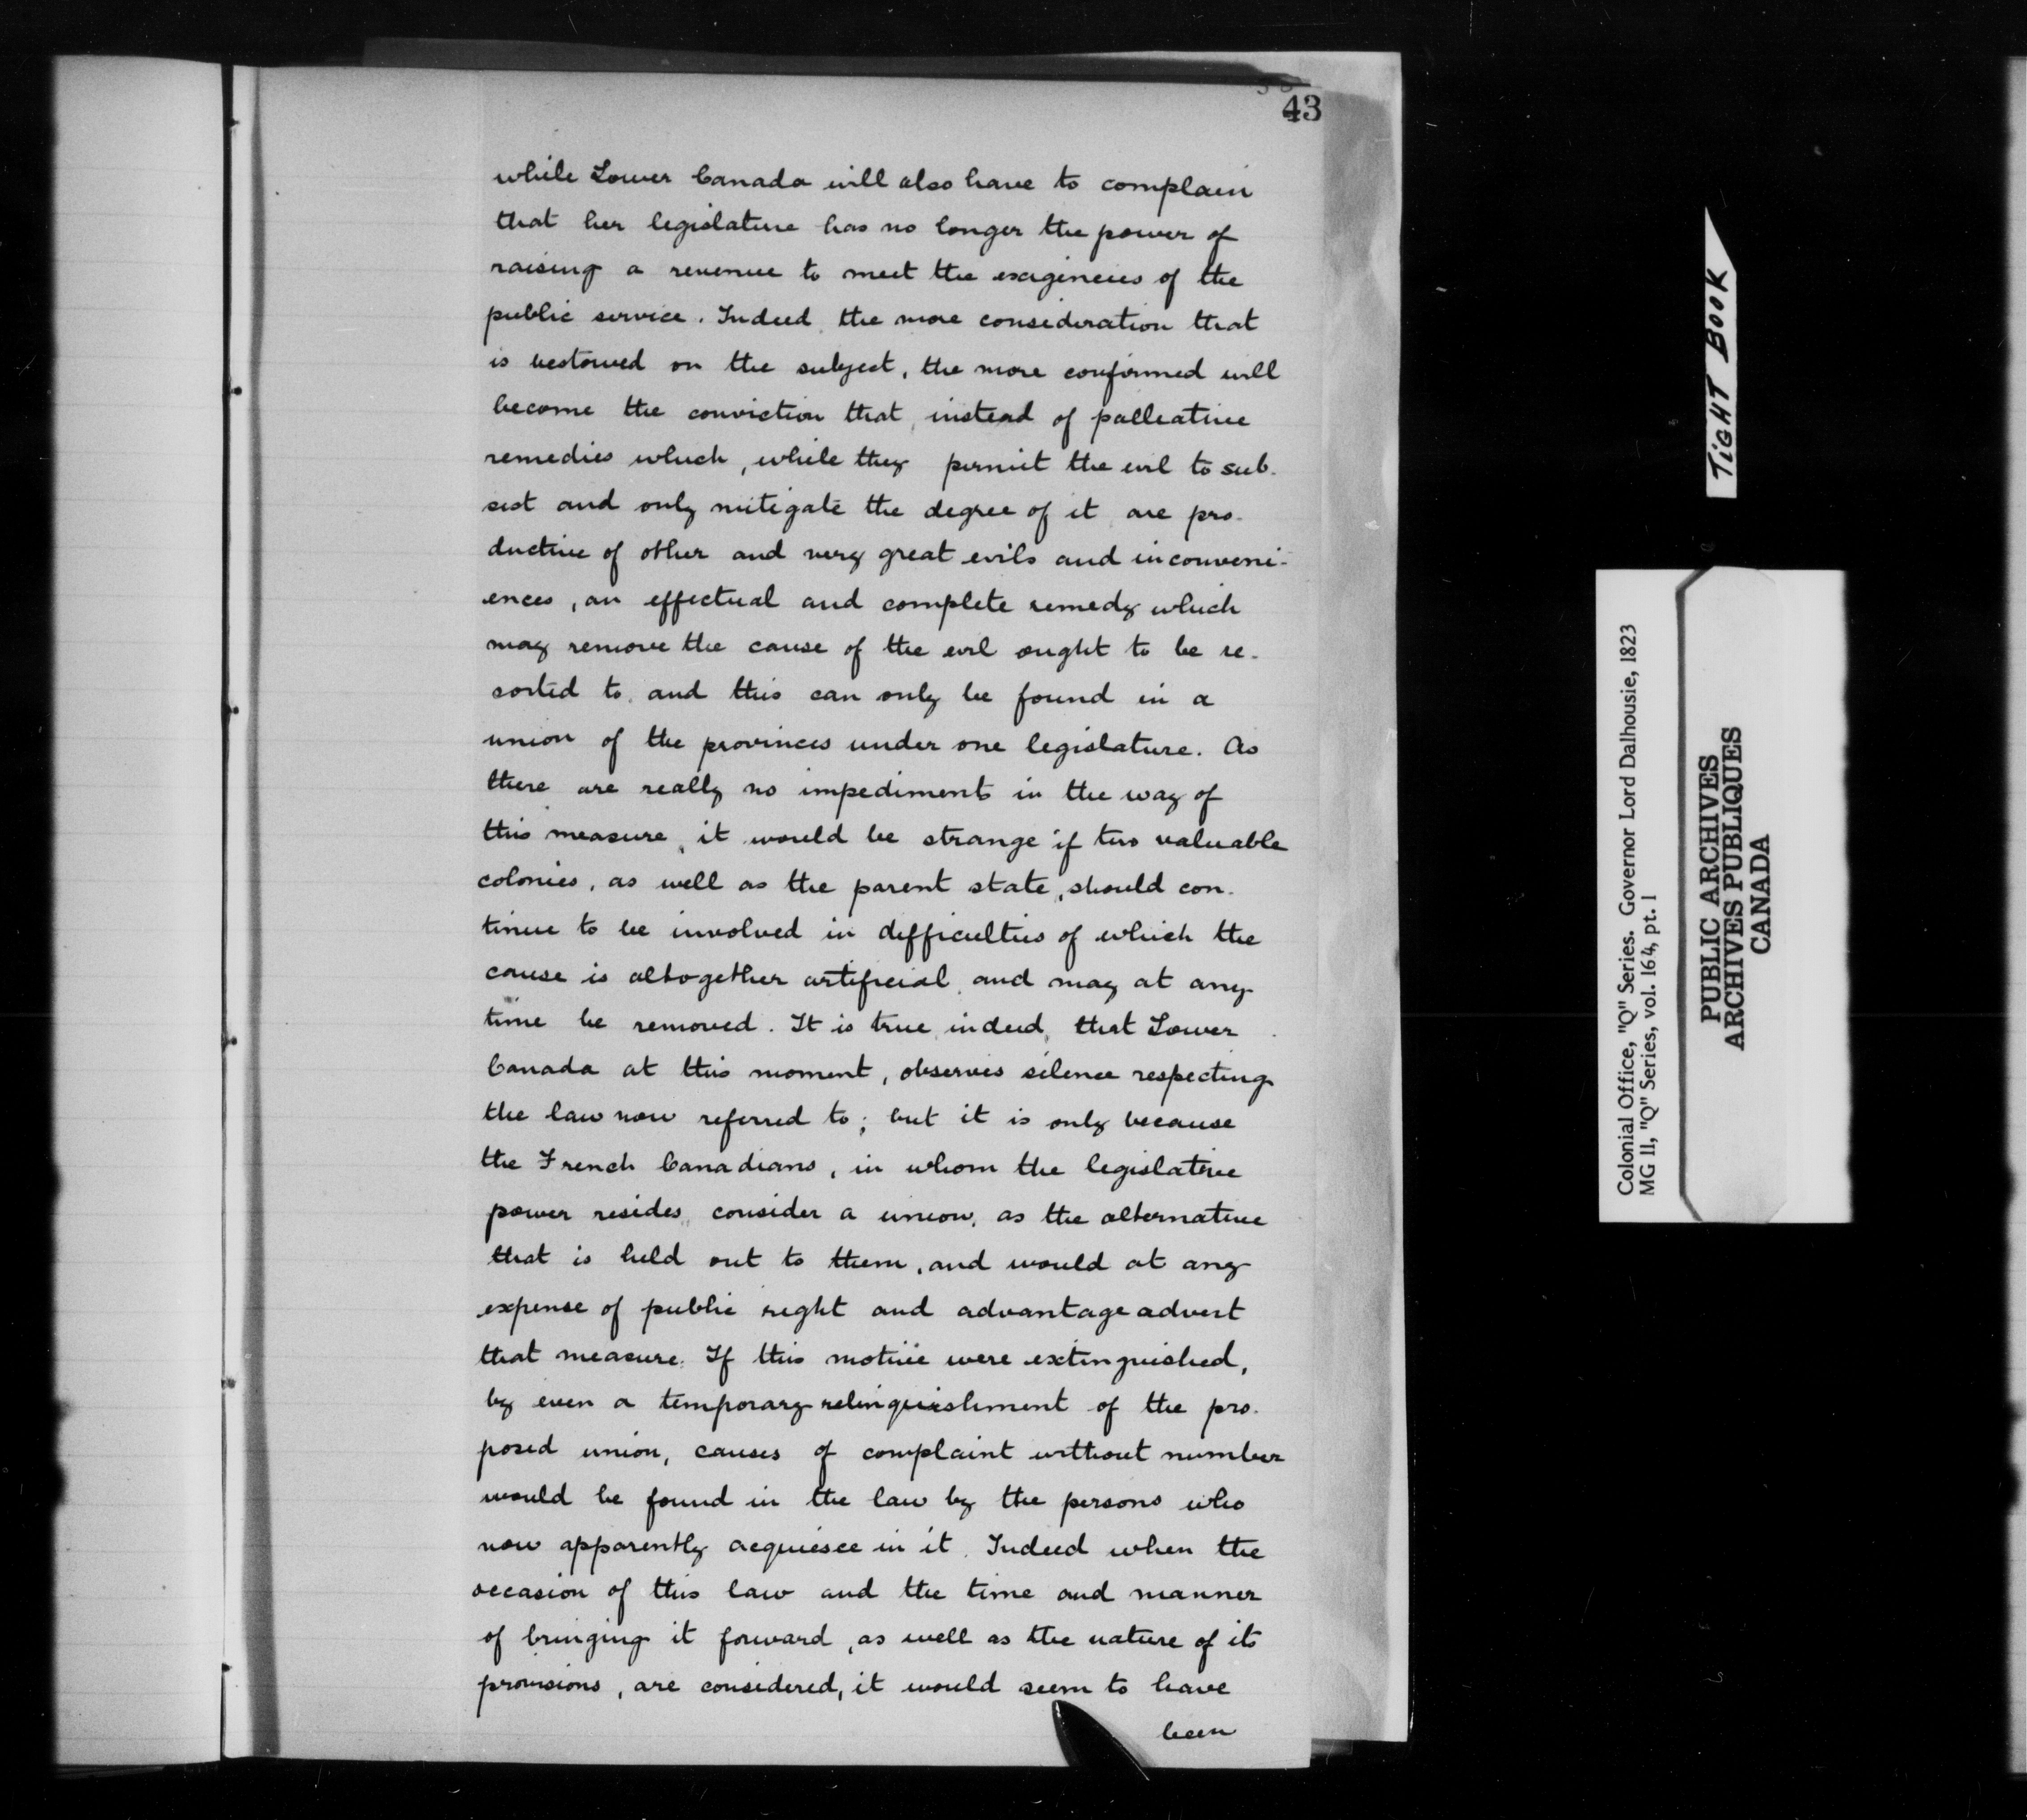 43
while Lower Canada will also have to complain
that her legislature has no longer the power of
raising a revenue to meet the exigencies of the
public service. Indeed, the more consideration that
is bestowed on the subject, the more confirmed will
become the conviction that, instead of palleative
remedies which, while they permit the evil to sub-
sist and only mitigate the degree of it, are pro-
ductive of other and very great evils and inconveni-
ences, an effectual and complete remedy which
may remove the cause of the evil ought to be re-
sorted to, and this can only be found in a
union of the provinces under one legislature. As
there are really no impediments in the way of
this measure, it would be strange if two valuable
colonies, as well as the parent state, should con-
tinue to be involved in difficulties of which the
cause is altogether artificial, and may at any
time be removed. It is true, indeed, that Lower
Canada at this moment, observes silence respecting
the law now referred to; but it is only because
the French Canadians, in whom the legislative
power resides, consider a union, as the alternative
that is held out to them, and would at any
expense of public right and advantage advert
that measure. If this motive were extinguished,
by even a temporary relinquishment of the pro-
posed union, causes of complaint without number
would be found in the law by the persons who
now apparently acquiesce in it. Indeed when the
occasion of this law and the time and manner
of bringing it forward, as well as the nature of its
provisions, are considered, it would seem to have
been
TIGHT BOOK
Colonial Office, "Q" Series. Governor Lord Dalhousie, 1823
MG 11, "Q" Series, vol. 164, pt. 1
PUBLIC ARCHIVES
ARCHIVES PUBLIQUES
CANADA